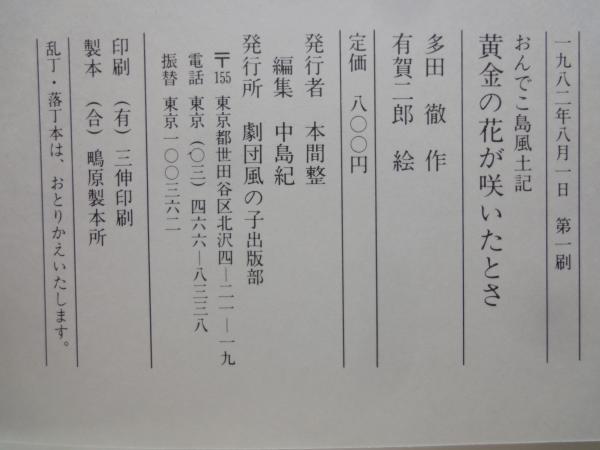 一九八二年八月一日　第一刷
おんでこ島風土記
黄金の花が咲いたとさ
多田　徹　作
有賀二郎　絵
定価　八〇〇円
発行者　本間整
編集　中島紀
発行所　劇団風の子出版部
〒155　東京都世田谷区北沢四―二一―一九
電話　東京（〇三）四六六―八三三八
振替　東京一〇〇三六二
印刷　（有）三伸印刷
製本　（合）鴫原製本所
乱丁・落丁本は、おとりかえいたします。